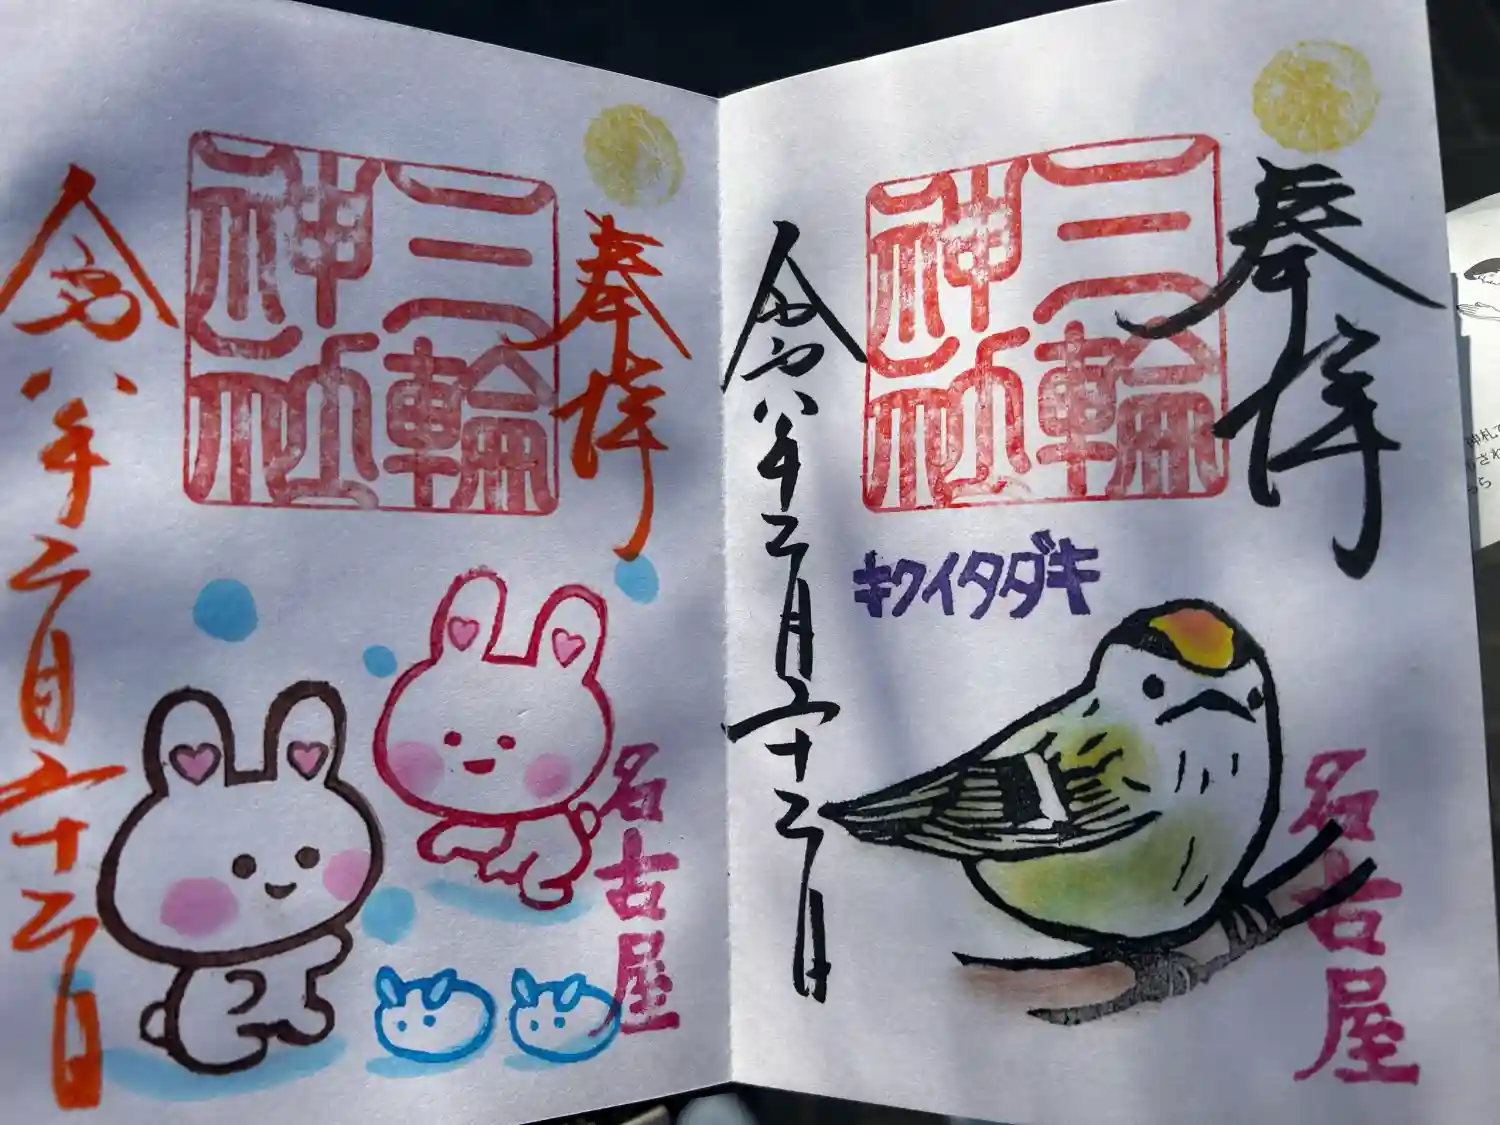 奉拝
三輪
神社
キクイタダキ
名古屋
令和八年二月二十二日
奉拝
三輪
神社
名古屋
令和八年二月二十二日